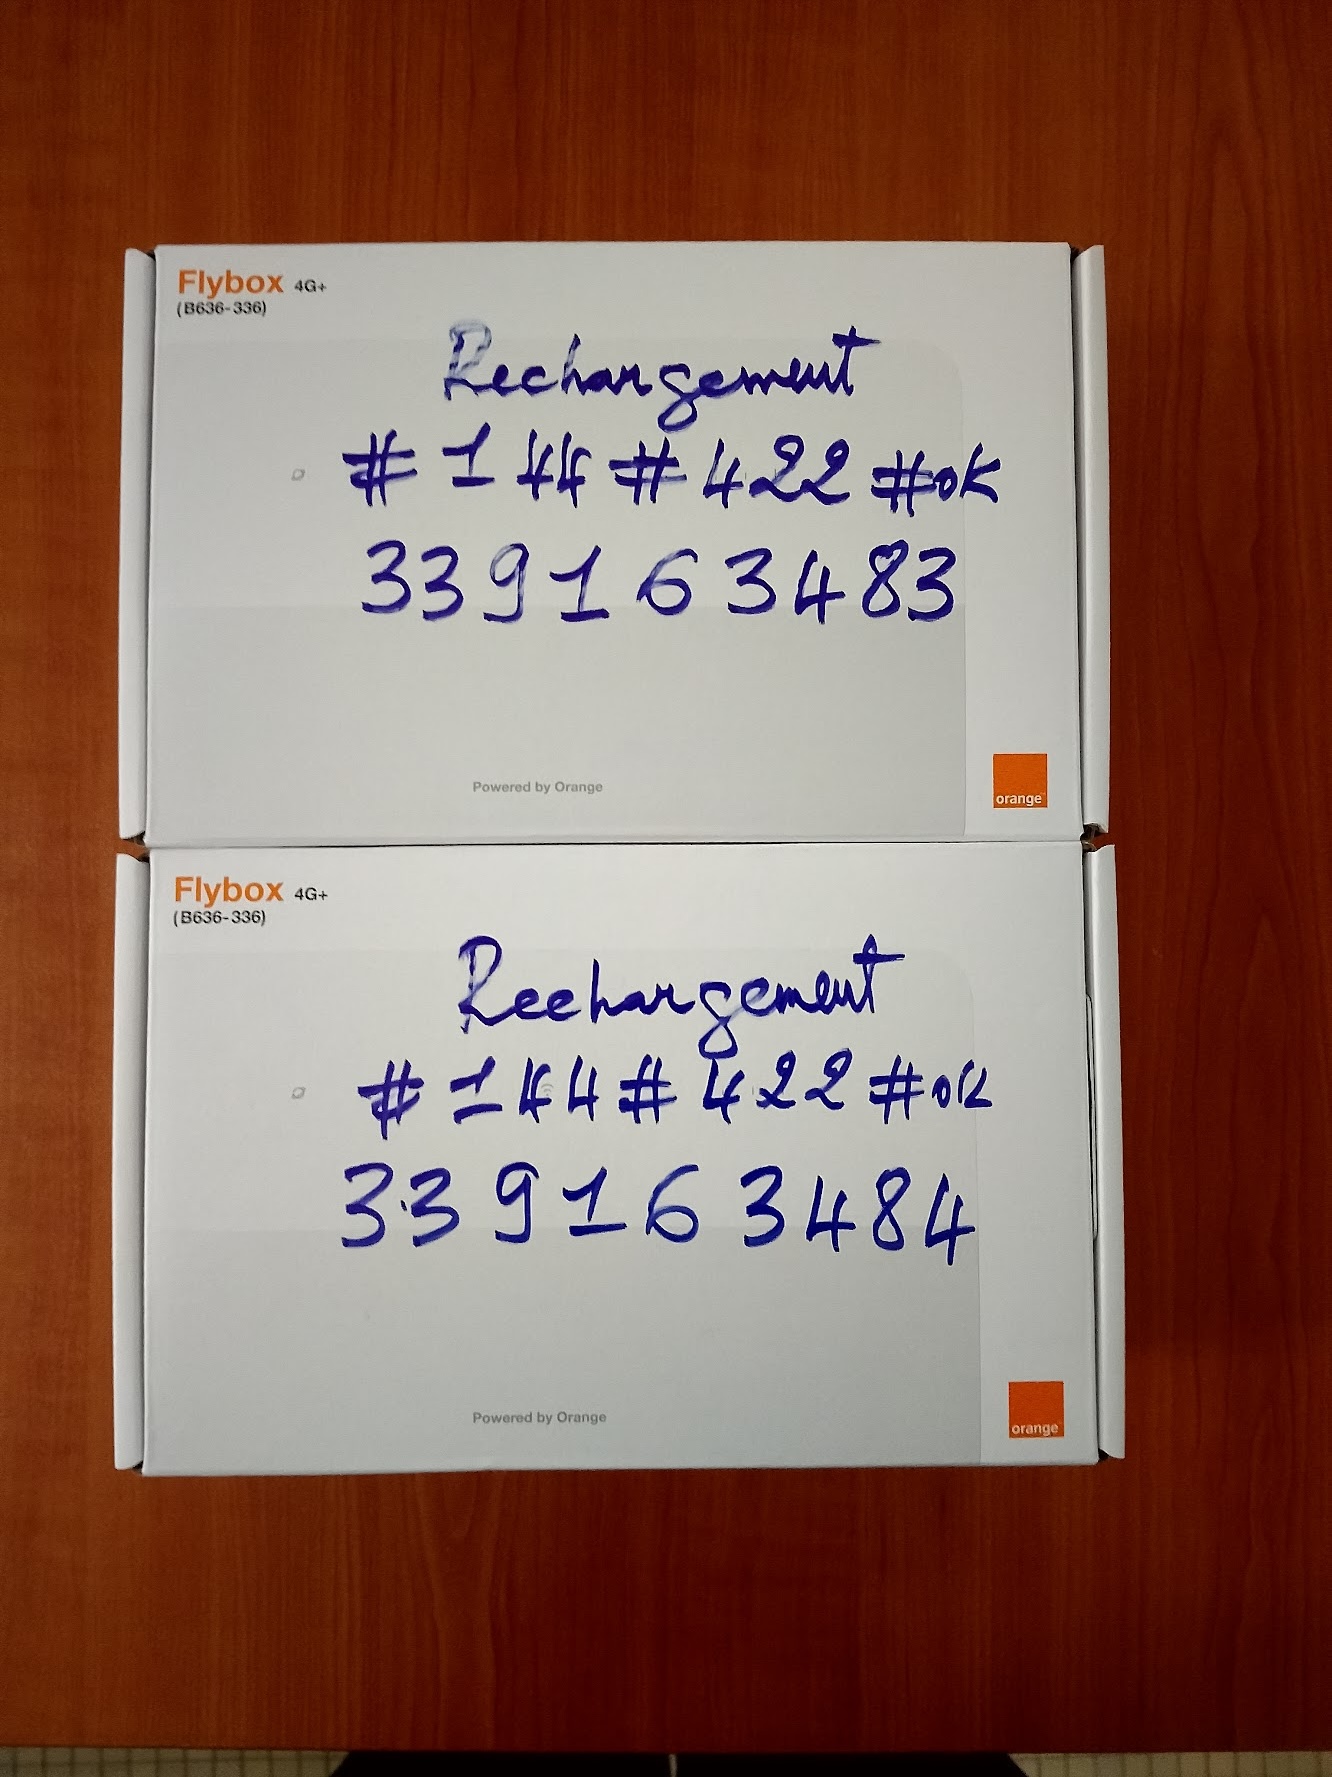 Flybox 4G+
(B636-336)
Rechargement
# 144 # 422 #ok
339163483
Powered by Orange
orange
Flybox 4G+
(B636-336)
Rechargement
# 144 # 422 #ok
339163484
Powered by Orange
orange